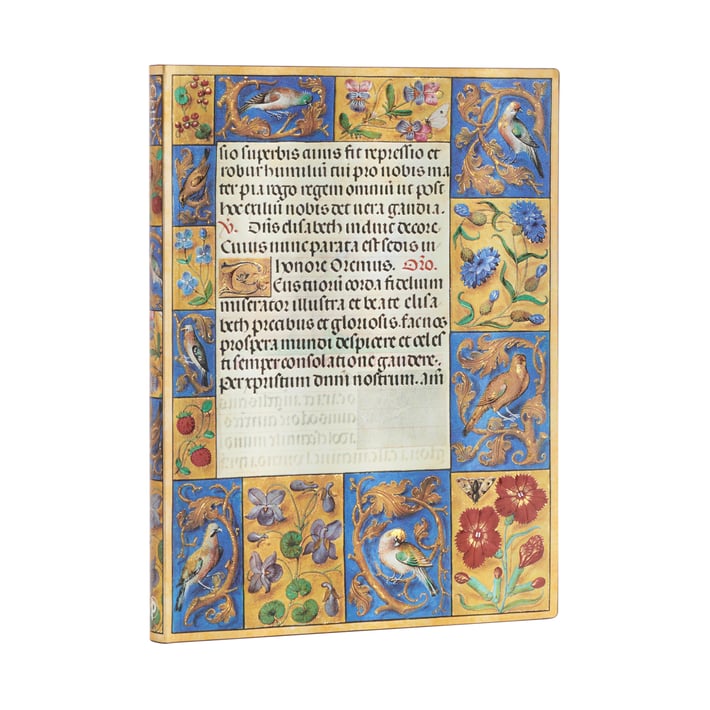 sio superbis cuius fit repressio et
robur humiliũ tui pro nobis ma
ter pia rogo regem omniũ ut post
hoc exiliũ nobis det uera gaudia.
V. Dñs elisabeth induit decore.
Cuius nunc parata est sedis in
honore Oremus. Oro.
Deus tuorũ corda fidelium
miserator illustra et beate elisa
beth precibus et gloriosis. fac nos
prospera mundi despicere et celes
ti semper consolatione gaudere.
Per xpristum dñm nostrum. Am̃